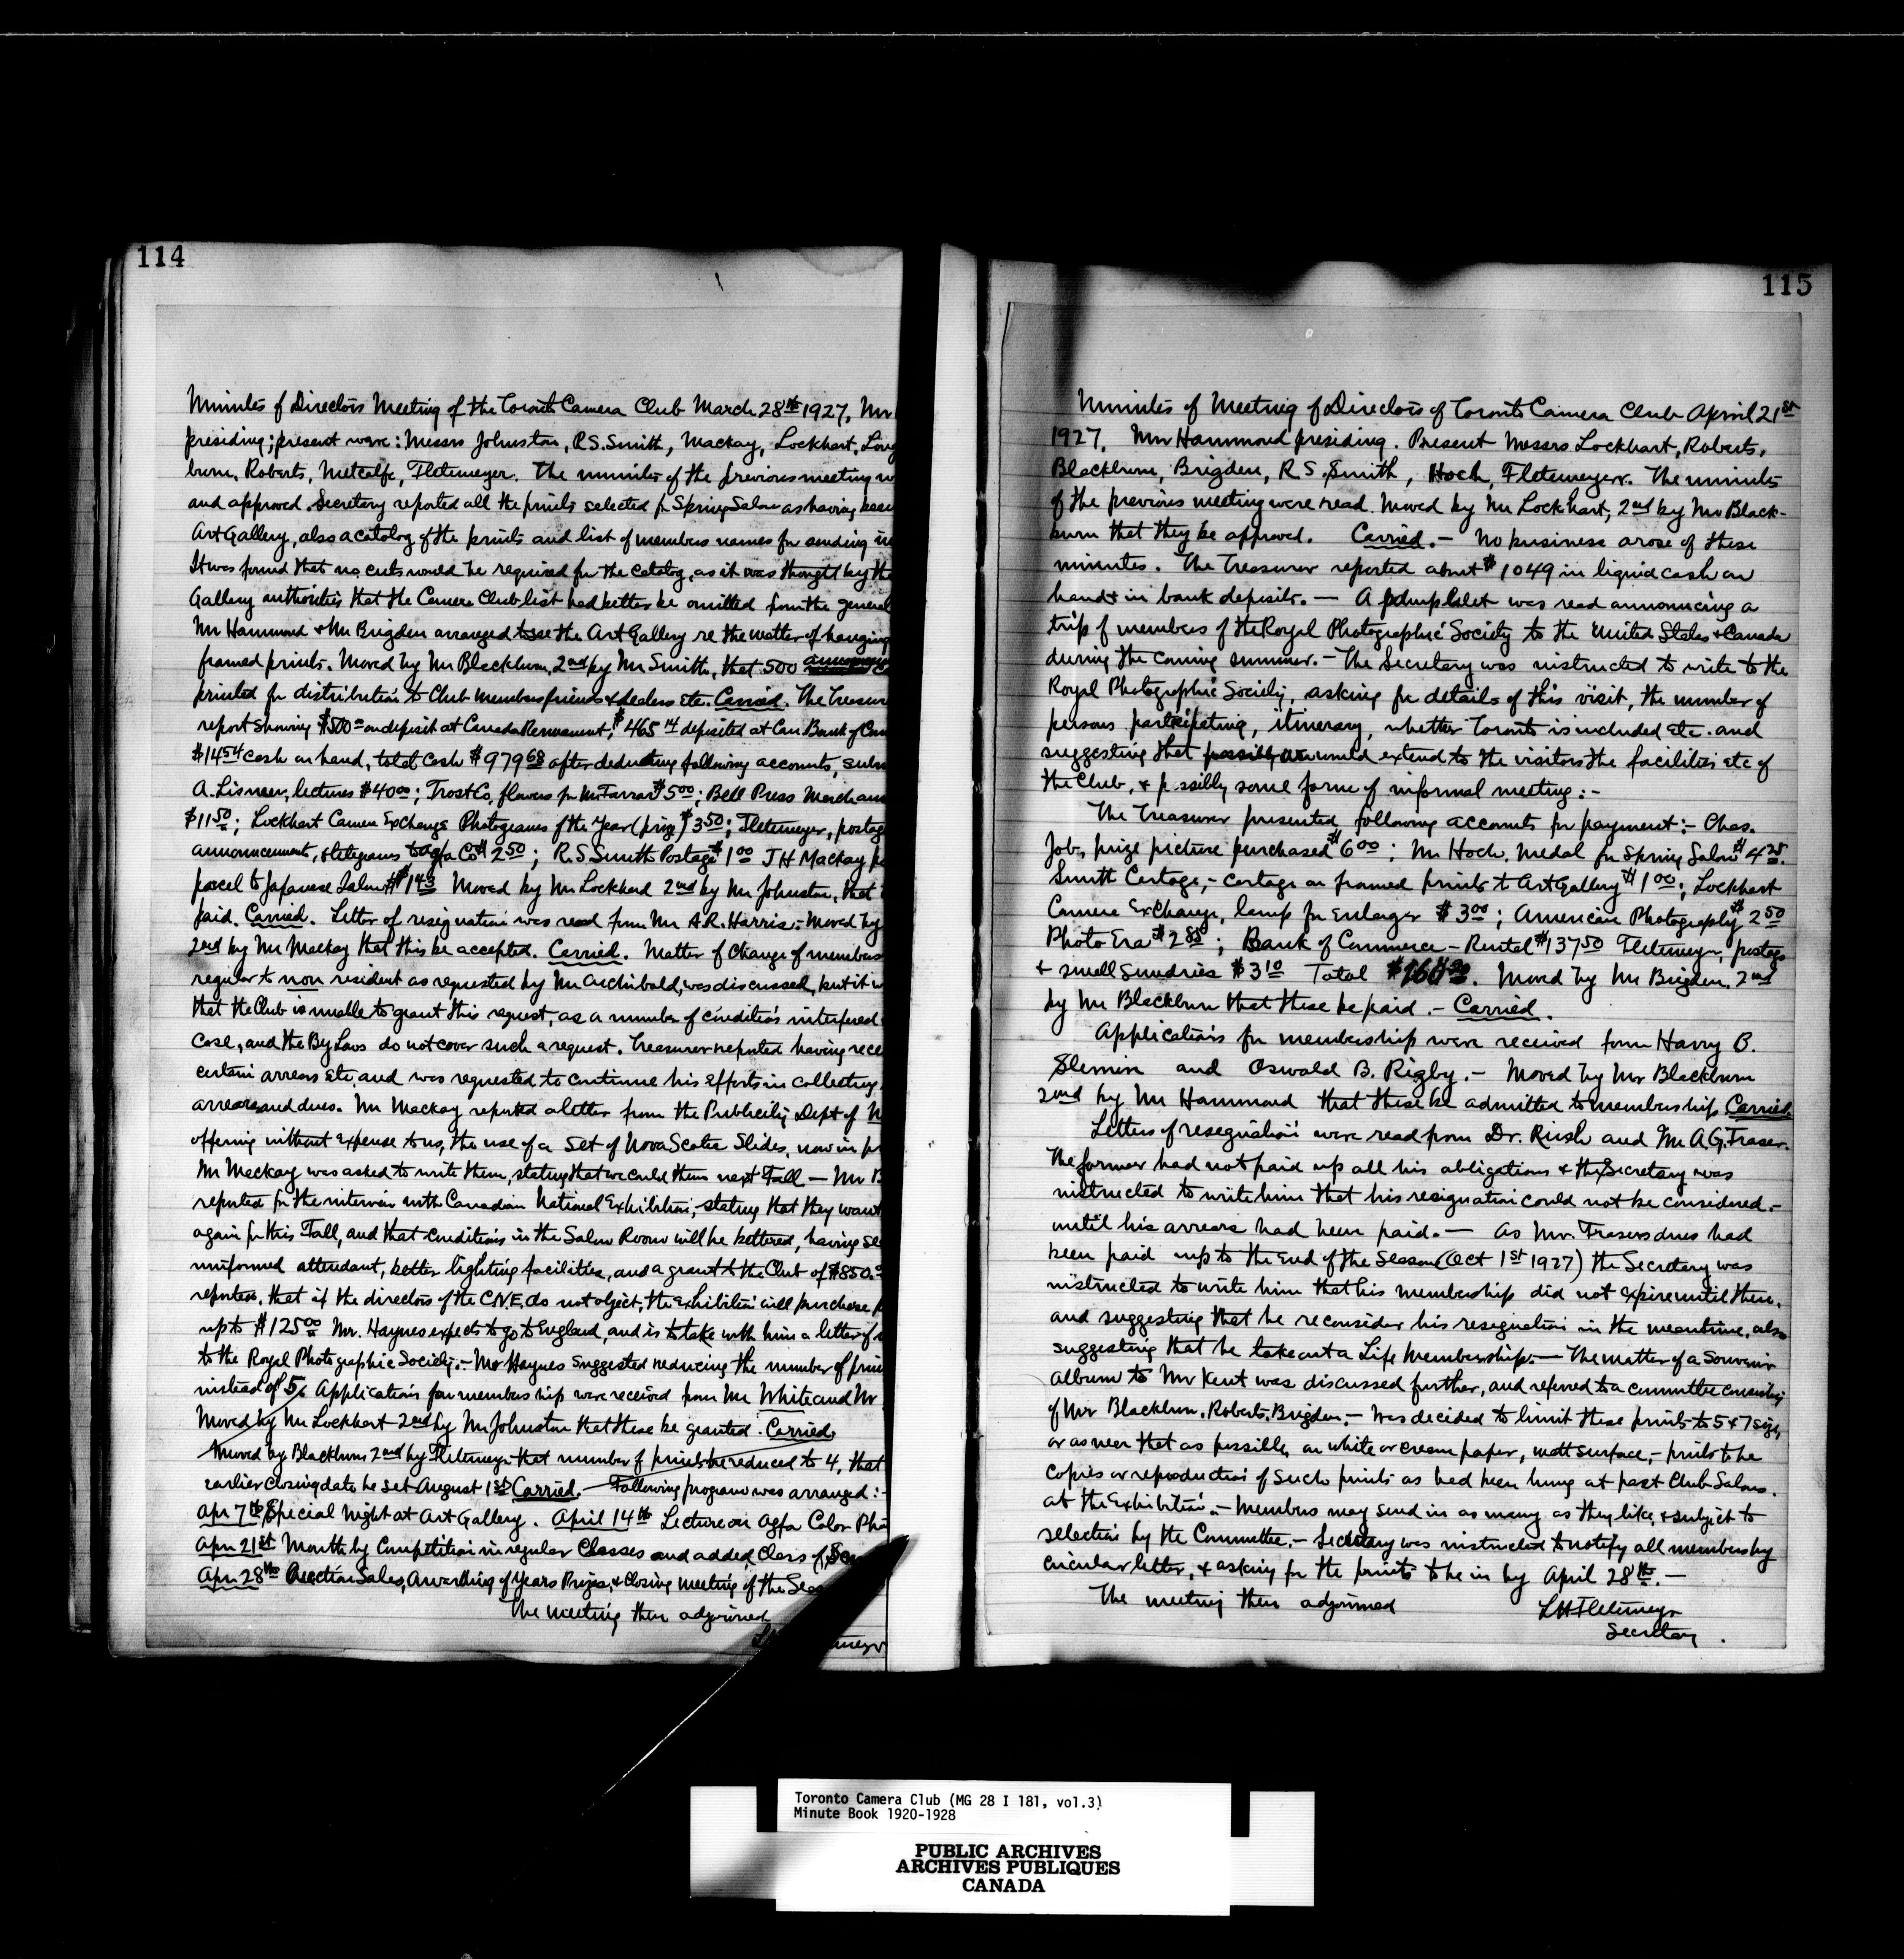 114
Minutes of Directors Meeting of the Toronto Camera Club March 28th 1927, Mr
presiding; present were: Messrs Johnston, R.S. Smith, Mackay, Lockhart,
burn, Roberts, Metcalfe, Fletemeyer. The minutes of the previous meeting
and approved. Secretary reported all the prints selected for Spring Salon as having been
Art Gallery, also a catalog of the prints and list of members names for sending
It was found that no cuts would be required for the catalog, as it was thought by the
Gallery authorities that the Camera Club list had better be omitted from the general
Mr Hammond & Mr Brigden arranged to see the Art Gallery re the matter of hanging
framed prints. Moved by Mr Blackburn, 2nd by Mr Smith, that 500
printed for distribution to Club members friends & dealers etc. Carried. The Treasurer
report showing $500 on deposit at Canada Permanent, $465 14 deposited at Can Bank of Com
$14 54 cash on hand, total cash $979 68 after deducting following accounts,
A. Lismer, lectures $40 00; Trost Co, flowers for Mr Farrar $5 00; Bell Press
$11 50; Lockhart Camera Exchange Photograms of the Year (prize) $3 50; Fletemeyer, postag
announcements, & telegrams to Agfa Co $2 50; R.S. Smith Postage $1 00 J H Mackay
parcel to Japanese Salon $1 43 Moved by Mr Lockhard 2nd by Mr Johnston, that
paid. Carried. Letter of resignation was read from Mr A.R. Harris. - Moved by
2nd by Mr Mackay that this be accepted. Carried. Matter of Change of members
regular to non resident as requested by Mr Archibald, was discussed, but it w
that the Club is unable to grant this request, as a number of conditions interfered
Case, and the By Laws do not cover such a request. Treasurer reported having rece
certain arrears etc, and was requested to continue his efforts in collecting
arrears and dues. Mr Mackay reported a letter from the Publicity Dept of N
offering without expense to us, the use of a set of Nova Scotia Slides, now in pr
Mr Mackay was asked to write them, stating that we could them next Fall — Mr B
reported for the interview with Canadian National Exhibition, stating that they want
again for this Fall, and that conditions in the Salon Room will be bettered, having
uniformed attendant, better lighting facilities, and a grant to the Club of $850.
reported, that if the directors of the CNE, do not object, the Exhibition will purchase p
up to $125 00 Mr. Haynes expects to go to England, and is to take with him a letter of
to the Royal Photographic Society. - Mr Haynes suggested reducing the number of prin
instead of 5, Application for membership were received from Mr White and Mr
Moved by Mr Lockhart 2nd by Mr Johnston that these be granted. Carried
Moved by Blackburn 2nd by Fletemeyer that number of prints be reduced to 4, that
earlier closing date be set August 1st Carried. — Following program was arranged: -
Apr 7th Special Night at Art Gallery. April 14th Lecture on Agfa Color Pho
Apr 21st Monthly Competition in regular Classes and added Class of
Apr 28th Auction Sales, Awarding of Years Prizes, & Closing meeting of the Seas
The meeting then adjourned
115
Minutes of Meeting of Directors of Toronto Camera Club April 21st
1927. Mr Hammond presiding. Present Messrs Lockhart, Roberts,
Blackburn, Brigden, R S. Smith, Hoch, Fletemeyer. The minutes
of the previous meeting were read. Moved by Mr Lockhart, 2nd by Mr Black-
burn that they be approved. Carried. - No business arose of these
minutes. The Treasurer reported about $1049 in liquid cash on
hand & in bank deposits. — A pamphlet was read announcing a
trip of members of the Royal Photographic Society to the United States & Canada
during the coming summer. - The Secretary was instructed to write to the
Royal Photographic Society, asking for details of this visit, the number of
persons participating, itinerary, whether Toronto is included etc. and
suggesting that possibly we would extend to the visitors the facilities etc of
the Club, & possibly some form of informal meeting: -
The Treasurer presented following accounts for payment: - Chas.
Job, prize picture purchased $6 00; Mr Hoch, Medal for Spring Salon $4 25.
Smith Cartage, - cartage on framed prints to Art Gallery $1 00; Lockhart
Camera Exchange, lamp for Enlarger $3 00; American Photography $2 50
Photo Era $2 85; Bank of Commerce - Rental $137 50 Fletemeyer, postage
& small sundries $3 10 Total . Moved by Mr Brigden, 2nd
by Mr Blackburn that these be paid. - Carried.
Applications for membership were received from Harry B.
Slemin and Oswald B. Rigby. - Moved by Mr Blackburn
2nd by Mr Hammond that these be admitted to membership Carried.
Letters of resignation were read from Dr. Rush and Mr A.G. Fraser.
The former had not paid up all his obligations & the Secretary was
instructed to write him that his resignation could not be considered. -
until his arrears had been paid. — As Mr. Frasers dues had
been paid up to the end of the Season (Oct 1st 1927) the Secretary was
instructed to write him that his membership did not expire until then,
and suggesting that he reconsider his resignation in the meantime, also
suggesting that he take out a Life Membership. — The matter of a Souvenir
album to Mr Kent was discussed further, and referred to a committee consisting
of Mr Blackburn, Roberts, Brigden. - Was decided to limit these prints to 5 & 7 size,
or as near that as possible, on white or cream paper, matt surface, - prints to be
Copies or reproduction of such prints as had been hung at past Club Salons.
at the Exhibition. - Members may send in as many as they like, & subject to
selection by the Committee. - Secretary was instructed to notify all members by
circular letter, & asking for the prints to be in by April 28th. -
The meeting then adjourned
LH Fletemeyer
Secretary.
Toronto Camera Club (MG 28 I 181, vol.3)
Minute Book 1920-1928
PUBLIC ARCHIVES
ARCHIVES PUBLIQUES
CANADA